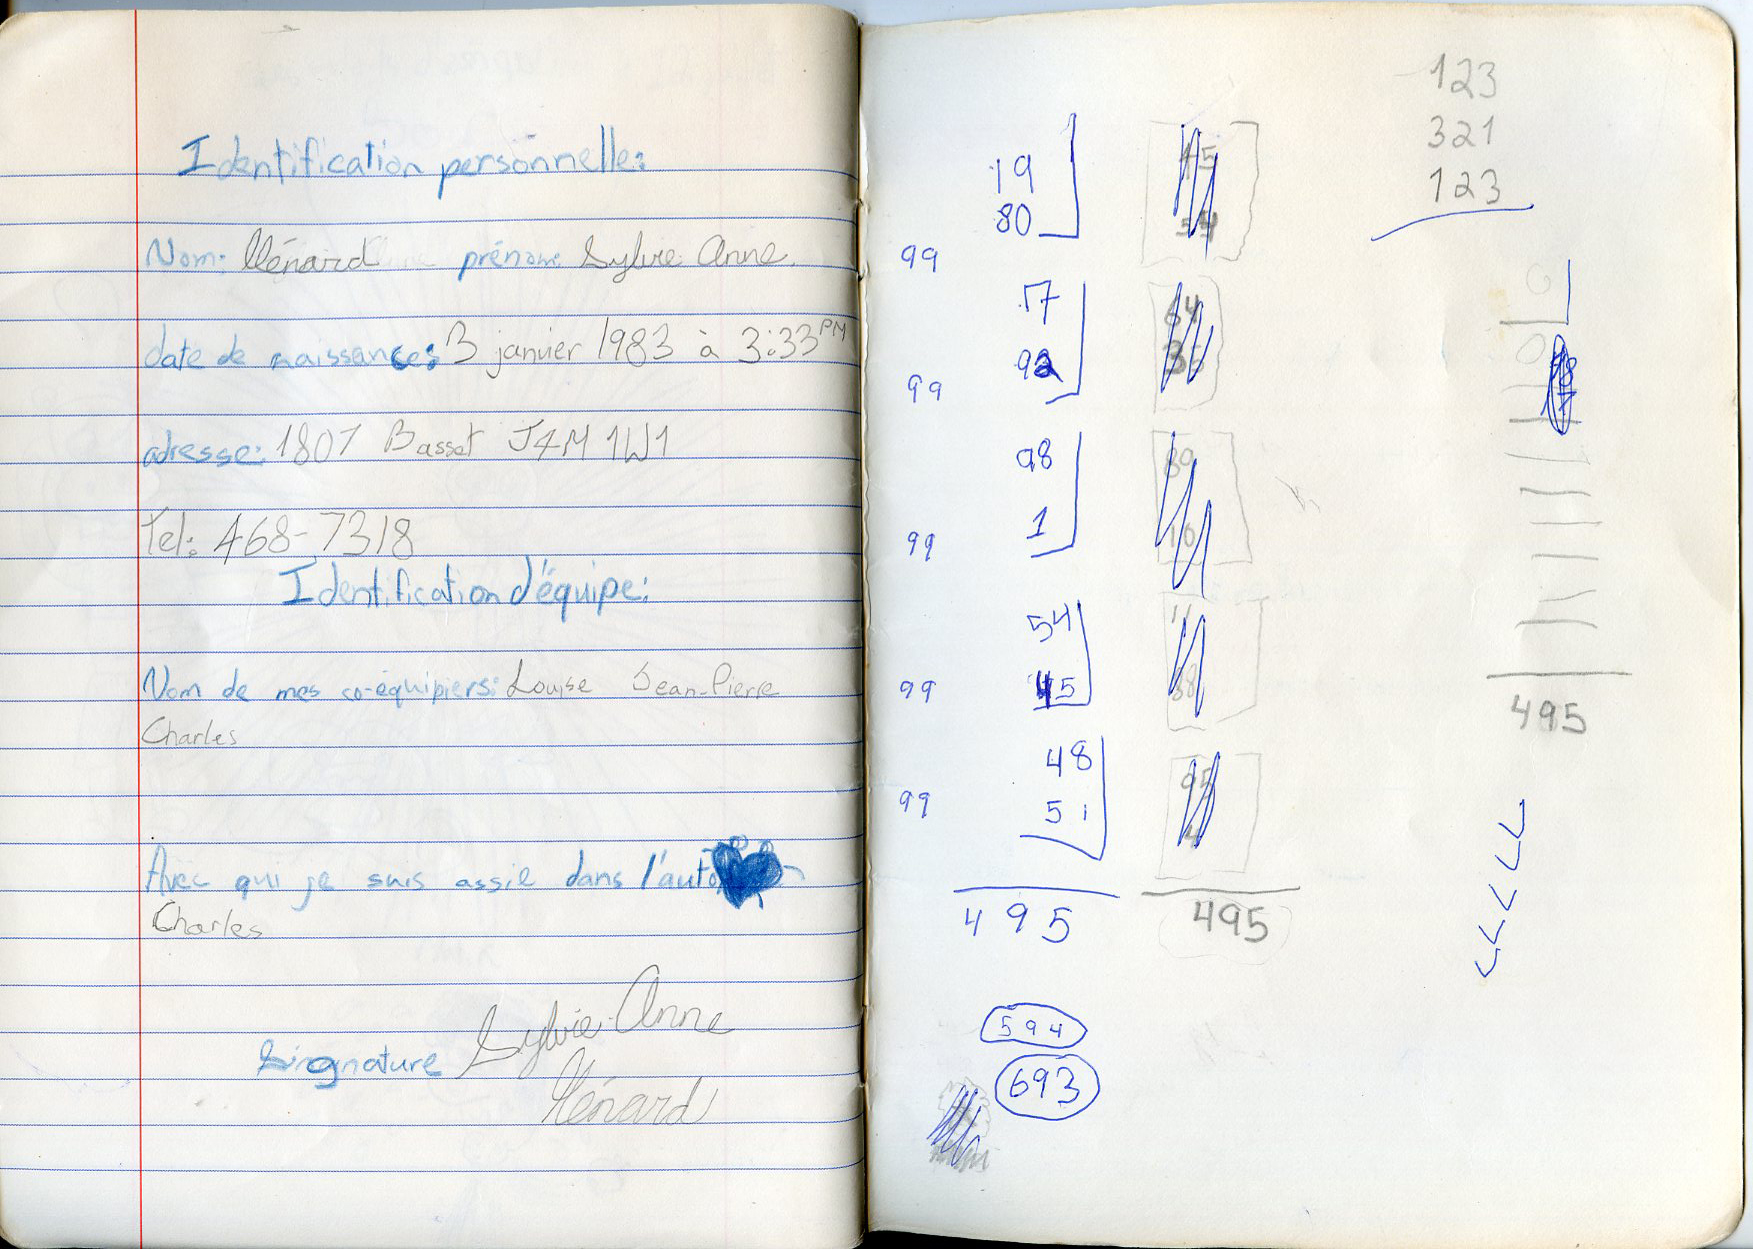 Identification personnelle:
Nom: Ménard prénom: Sylvie Anne
date de naissance: 3 janvier 1983 à 3:33 PM
adresse: 1807 Basset J4M 1W1
Tel: 468-7318
Identification d'équipe:
Nom de mes co-équipiers: Louise Jean-Pierre
Charles
Avec qui je suis assie dans l'auto
Charles
Signature Sylvie-Anne
Ménard
123
321
123
19
80
99
17
92
99
98
1
99
54
45
99
48
51
99
495
495
495
594
693